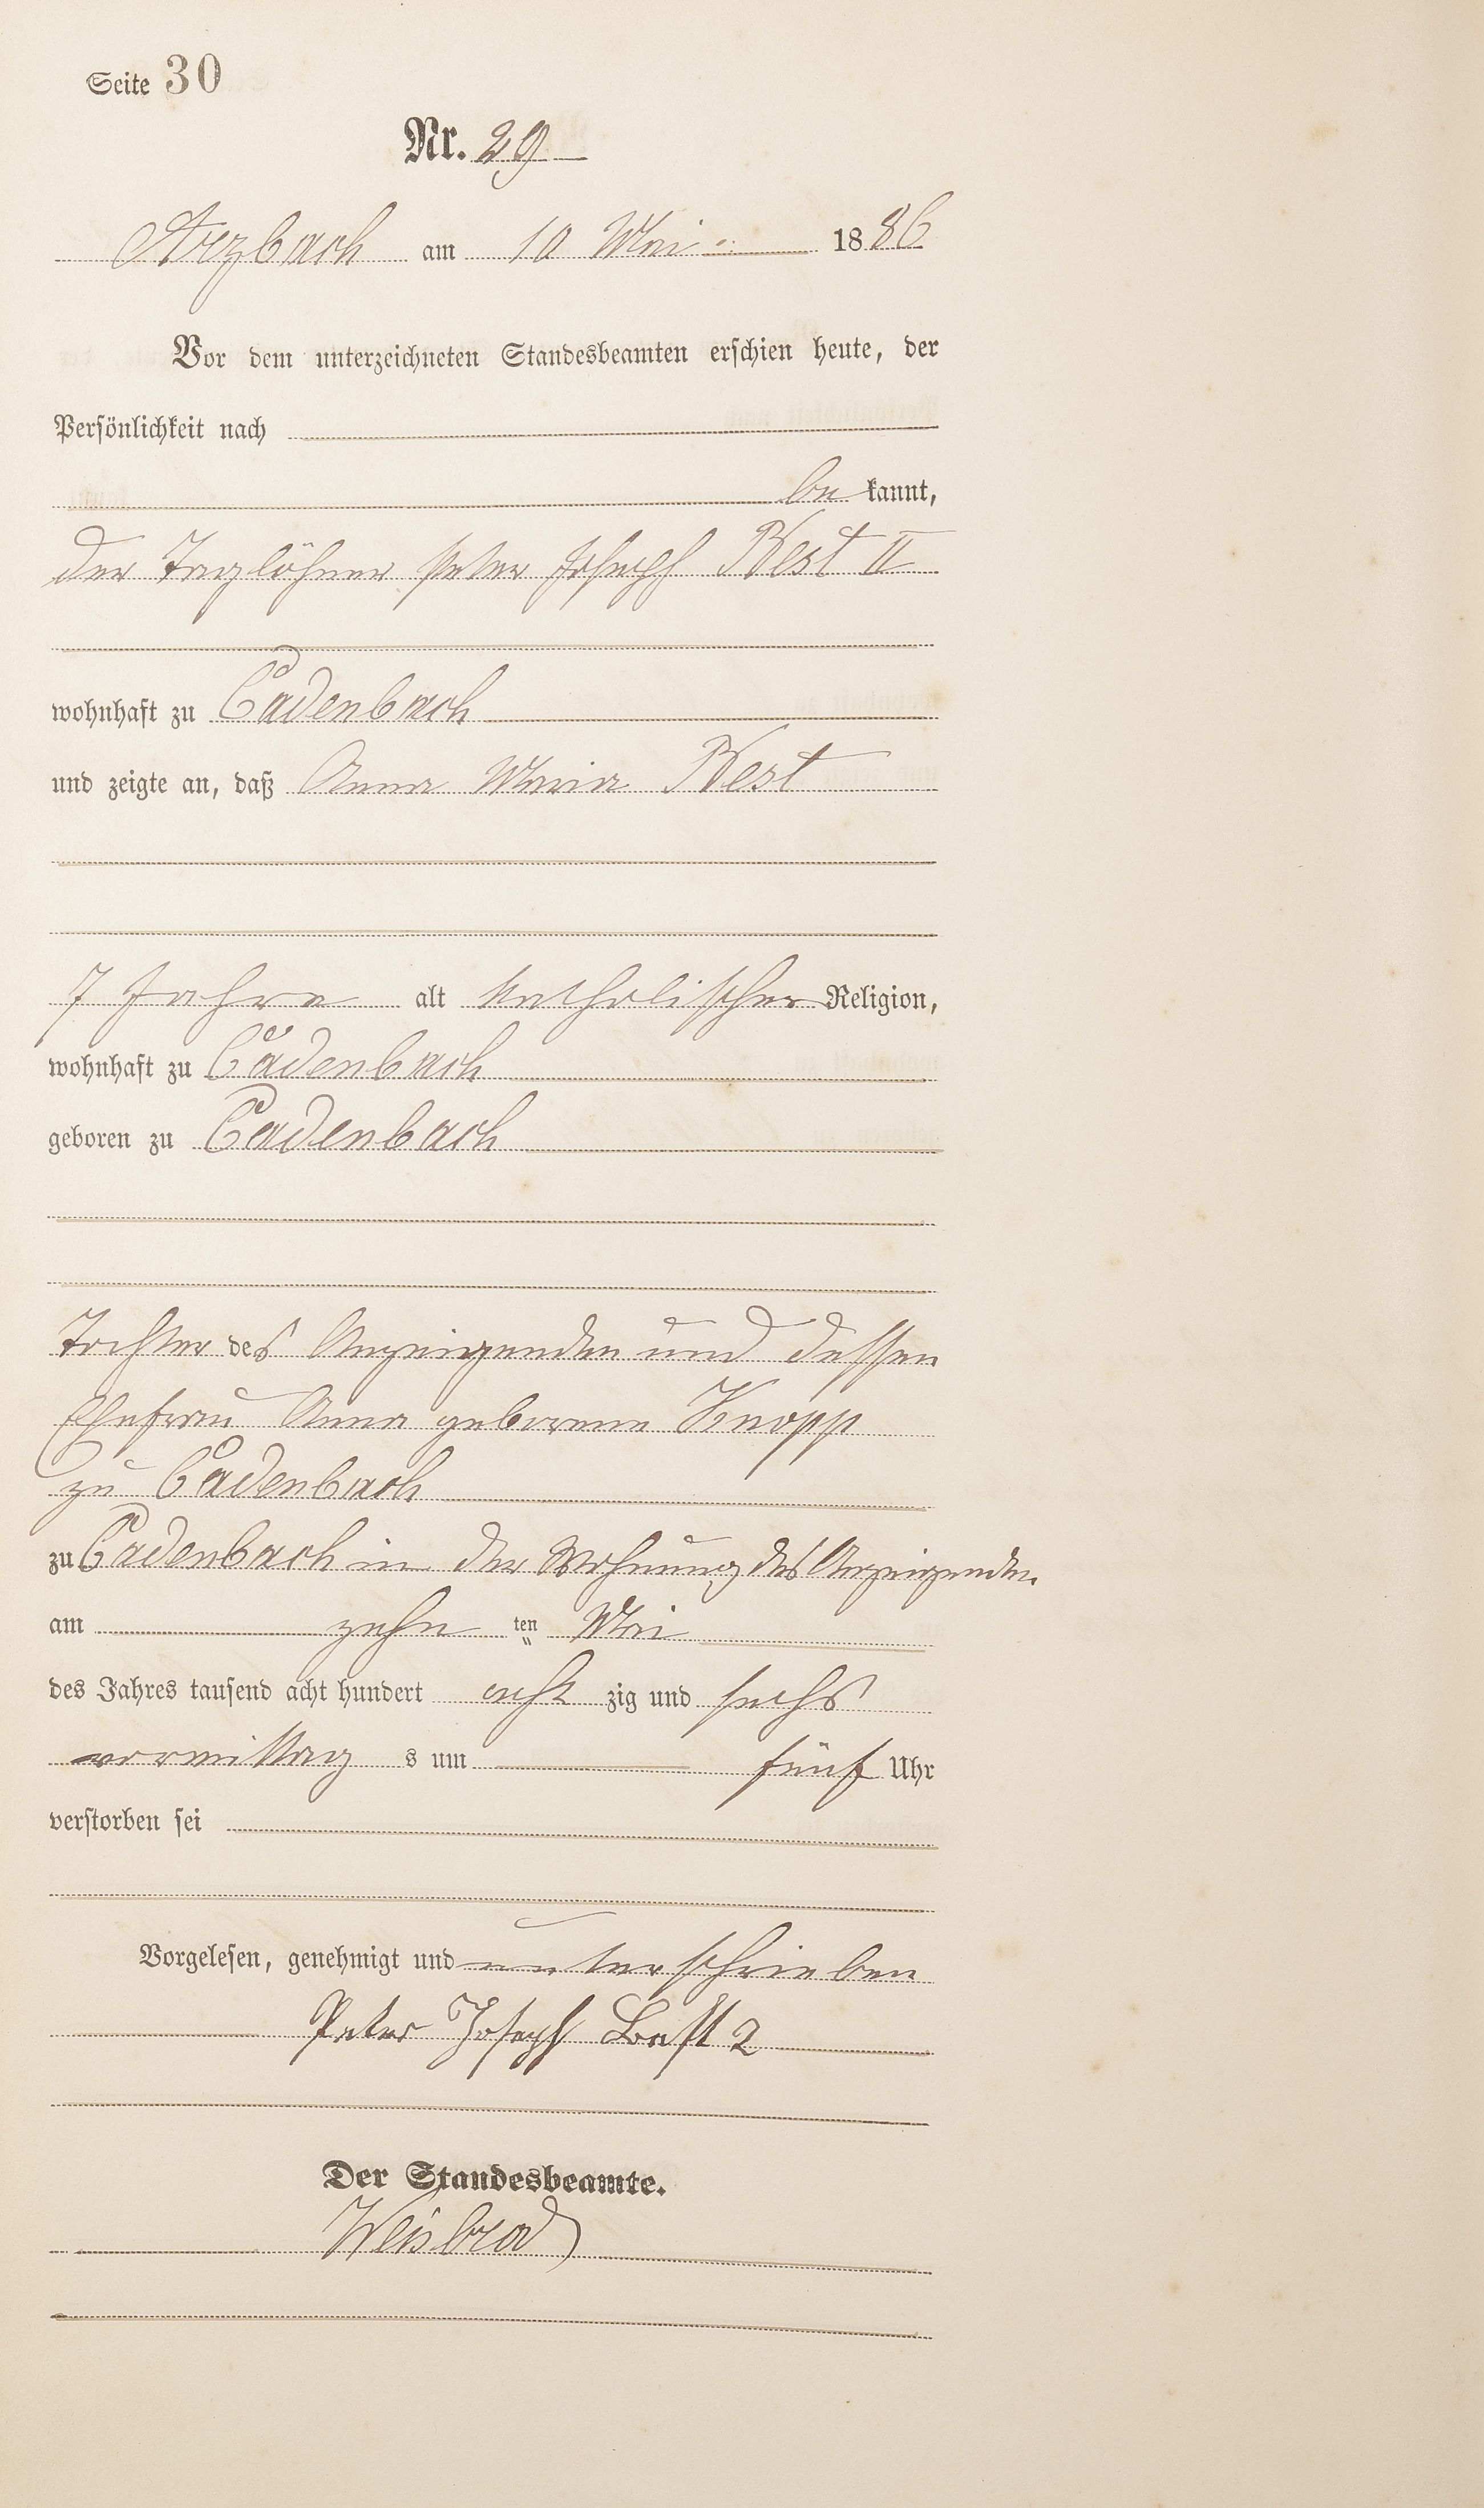 Seite 30
Nr. 29
Arzbach am 10 Mai 1886
Vor dem unterzeichneten Standesbeamten erschien heute, der
Persönlichkeit nach
be kannt,
der Taglöhner Peter Joseph Best II
wohnhaft zu Cadenbach
und zeigte an, daß Anna Maria Best
7 Jahre alt katholischer Religion,
wohnhaft zu Cadenbach
geboren zu Cadenbach
Tochter des Anzeigenden und dessen
Ehefrau Anna geborene Knopp
zu Cadenbach
zu Cadenbach in der Wohnung des Anzeigenden
am zehn ten Mai
des Jahres tausend acht hundert acht zig und sechs
vormittag s um fünf Uhr
verstorben sei
Vorgelesen, genehmigt und unterschrieben
Peter Joseph Best 2
Der Standesbeamte.
Weisbrod